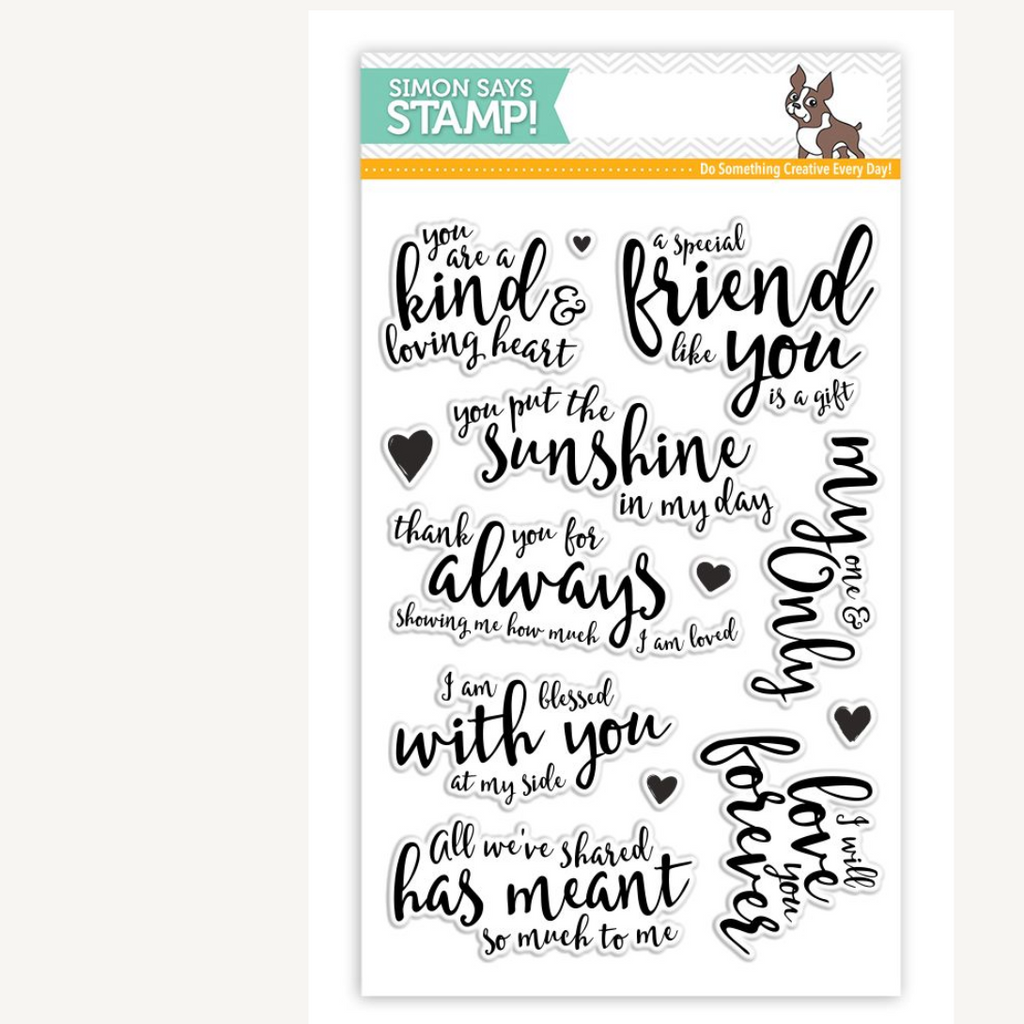 SIMON SAYS
STAMP!
Do Something Creative Every Day!
you
are a
kind &
loving heart
a special
friend
like you
is a gift
you put the
sunshine
in my day
my
one &
Only
thank you for
always
showing me how much I am loved
I am blessed
with you
at my side
I will
love
you
forever
All we've shared
has meant
so much to me